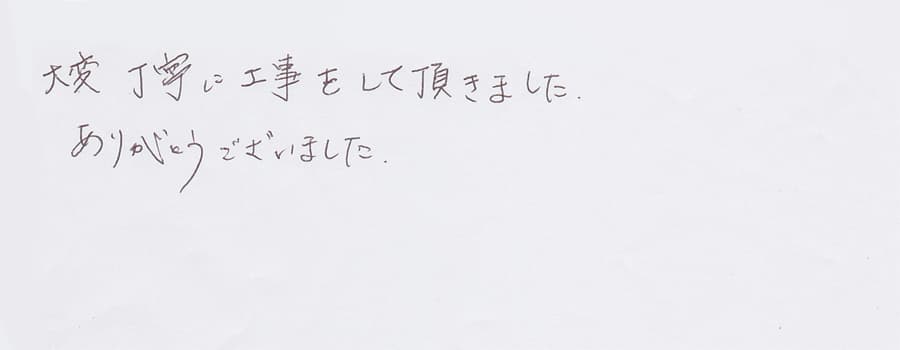 大変 丁寧に工事をして頂きました.
ありがとうございました.